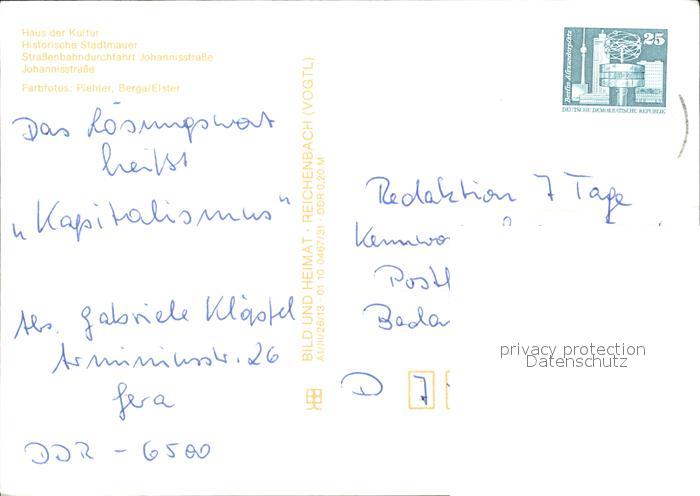 Haus der Kultur
Historische Stadtmauer
Straßenbahndurchfahrt Johannisstraße
Johannisstraße
Farbfotos: Piehler, Berga/Elster
Das Lösungswort
heißt
„Kapitalismus"
Abs. Gabriele
Arminiusstr. 26
Gera
DDR - 6500
BILD UND HEIMAT · REICHENBACH (VOGTL)
A1/III/26/13 01 10 0467/31 · DDR 0,20 M
Berlin, Alexanderplatz
25
DEUTSCHE DEMOKRATISCHE REPUBLIK
Redaktion 7 Tage
Kennwo
Postf
Baden
D 7
privacy protection
Datenschutz